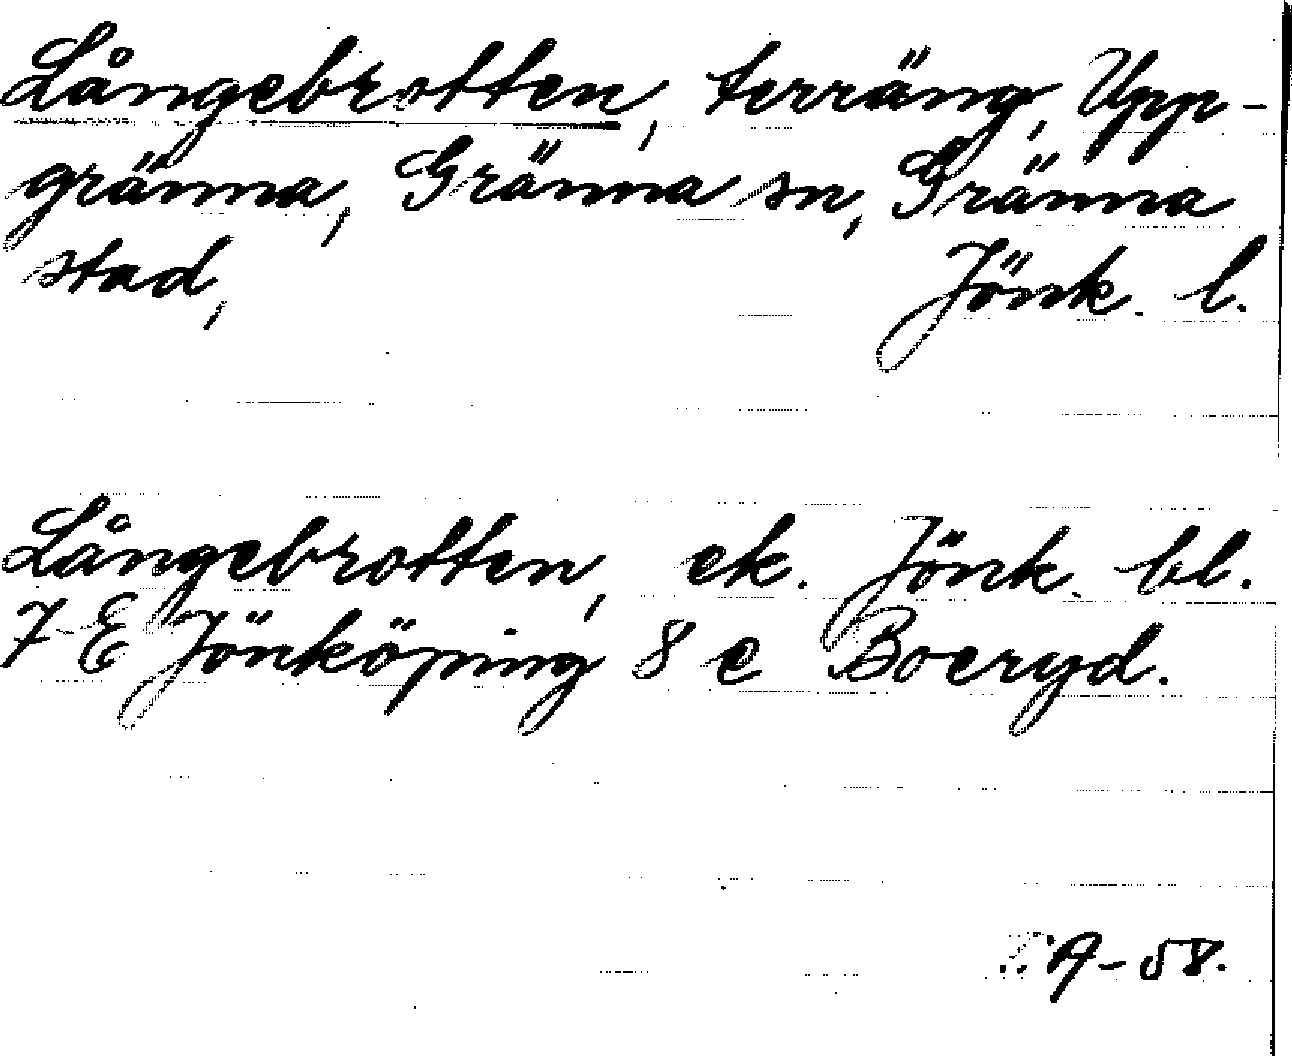 Långebrotten, terräng, Upp-
gränna, Gränna sn, Gränna
stad, Jönk. l.
Långebrotten, ek. Jönk. bl.
7 E Jönköping 8 e Boeryd.
A-58.